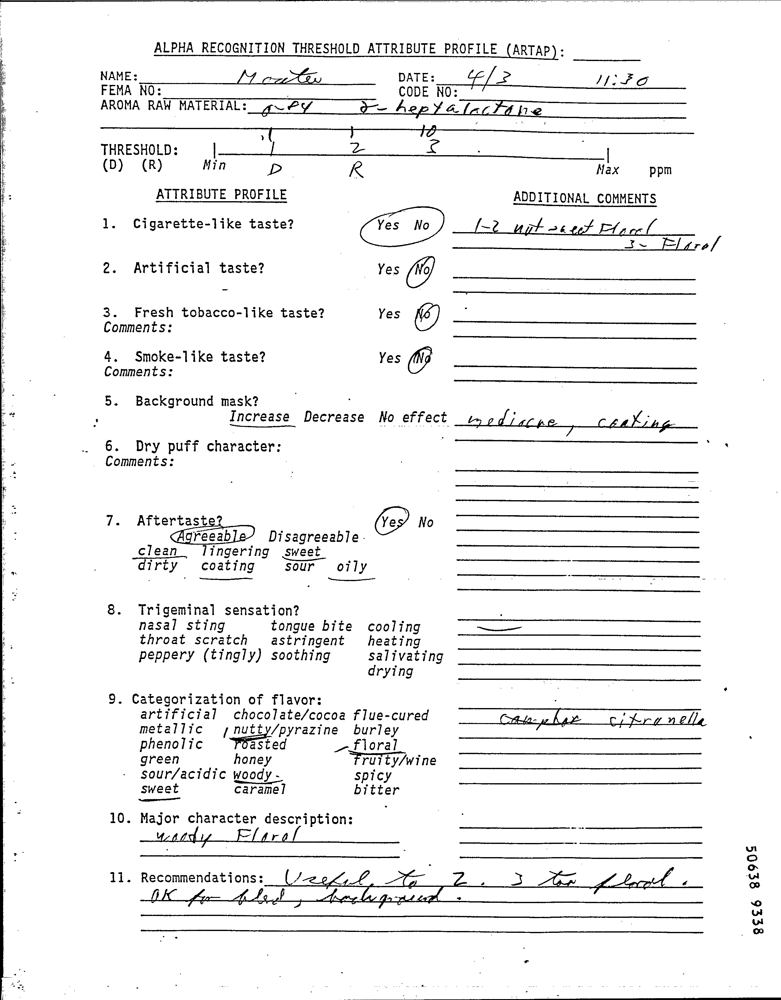 ALPHA RECOGNITION THRESHOLD ATTRIBUTE PROFILE (ARTAP):
NAME: DATE: 4/3 11:30
FEMA NO: CODE NO:
AROMA RAW MATERIAL: heptalactone
.1 1 10
THRESHOLD: 1 2 3
(D) (R) Min D R Max ppm
ATTRIBUTE PROFILE ADDITIONAL COMMENTS
1. Cigarette-like taste? Yes No 1-2 not sweet Floral
3- Floral
2. Artificial taste? Yes No
3. Fresh tobacco-like taste? Yes No
Comments:
4. Smoke-like taste? Yes No
Comments:
5. Background mask?
Increase Decrease No effect mediocre, coating
6. Dry puff character:
Comments:
7. Aftertaste? Yes No
Agreeable Disagreeable
clean lingering sweet
dirty coating sour oily
8. Trigeminal sensation?
nasal sting tongue bite cooling
throat scratch astringent heating
peppery (tingly) soothing salivating
drying
9. Categorization of flavor:
artificial chocolate/cocoa flue-cured camphor citronella
metallic nutty/pyrazine burley
phenolic roasted floral
green honey fruity/wine
sour/acidic woody spicy
sweet caramel bitter
10. Major character description:
woody Floral
11. Recommendations: Useful to 2. 3 too floral.
OK for bled, background.
50638 9338